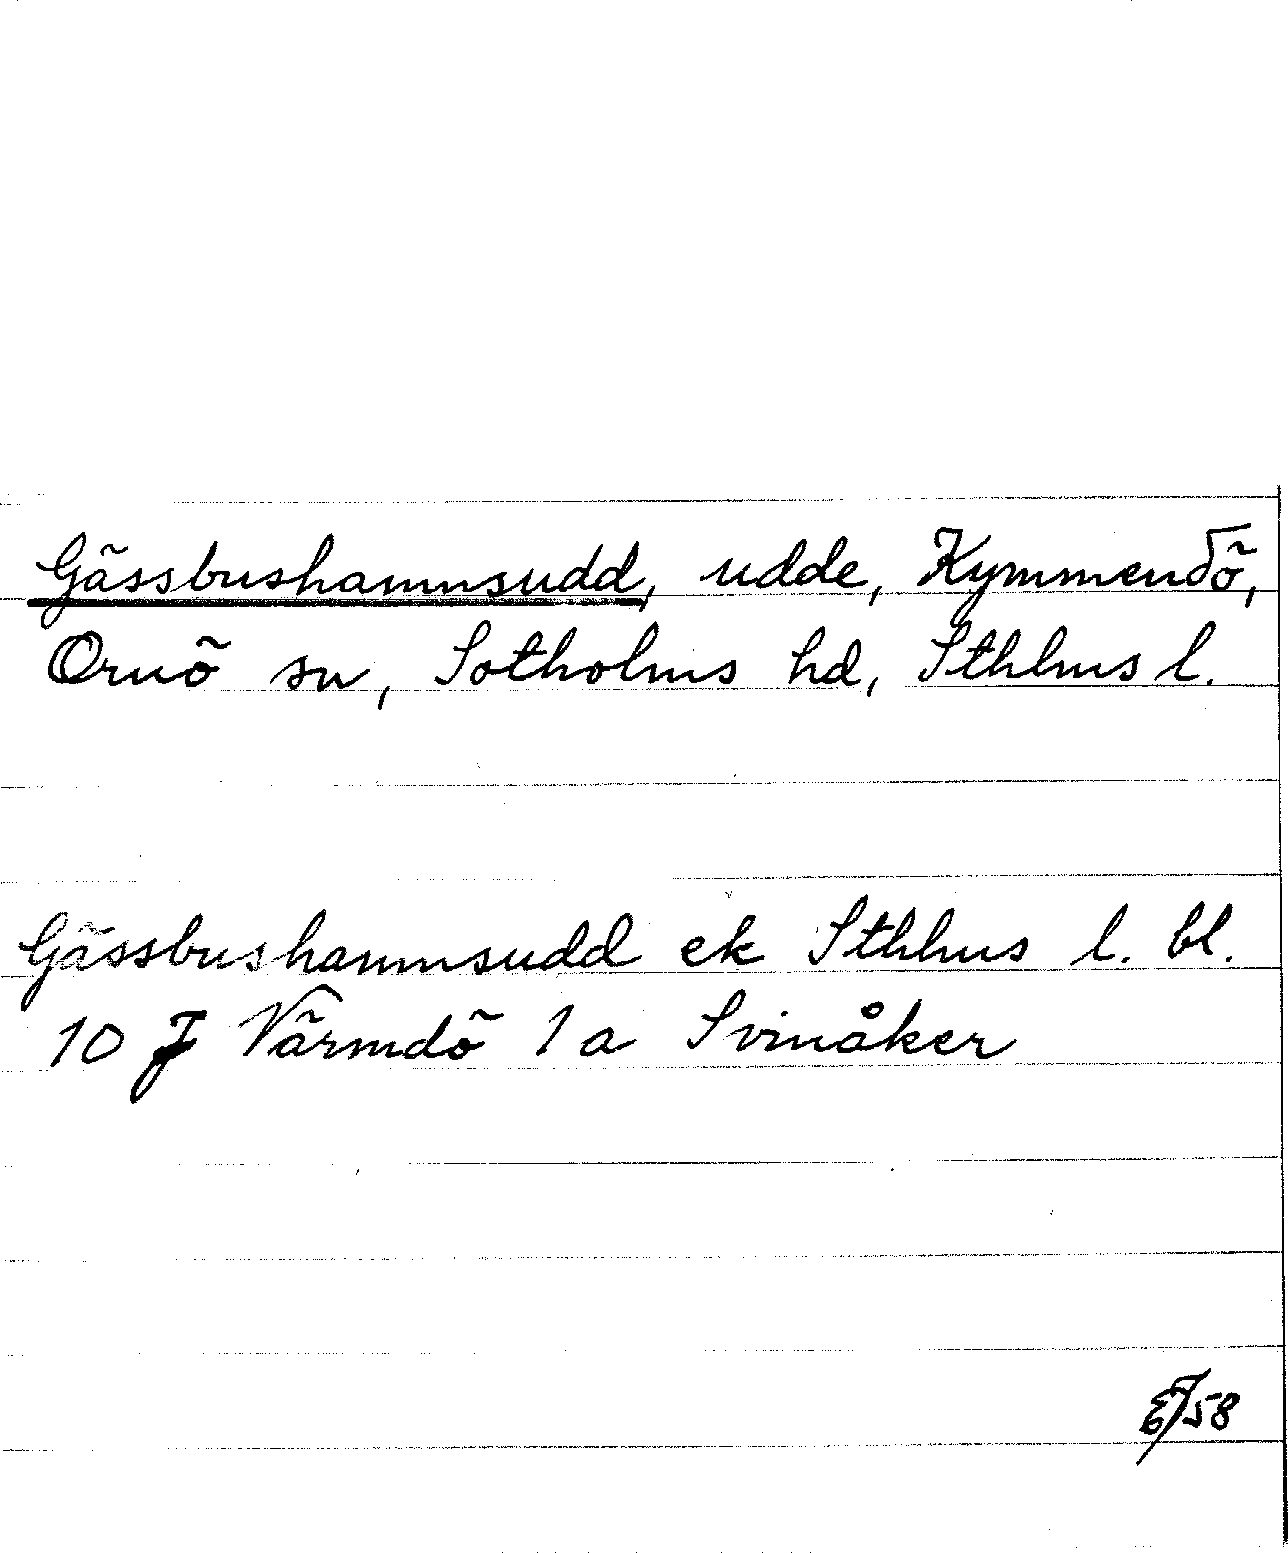 Gässbushamnsudd, udde, Kymmendö,
Ornö sn, Sotholms hd, Sthlms l.
Gässbushamnsudd ek Sthlms l. bl.
10 J Värmdö 1 a Svinåker
EJ 58